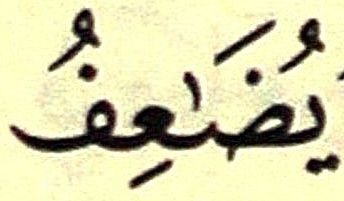 يُضَٰعِفُ